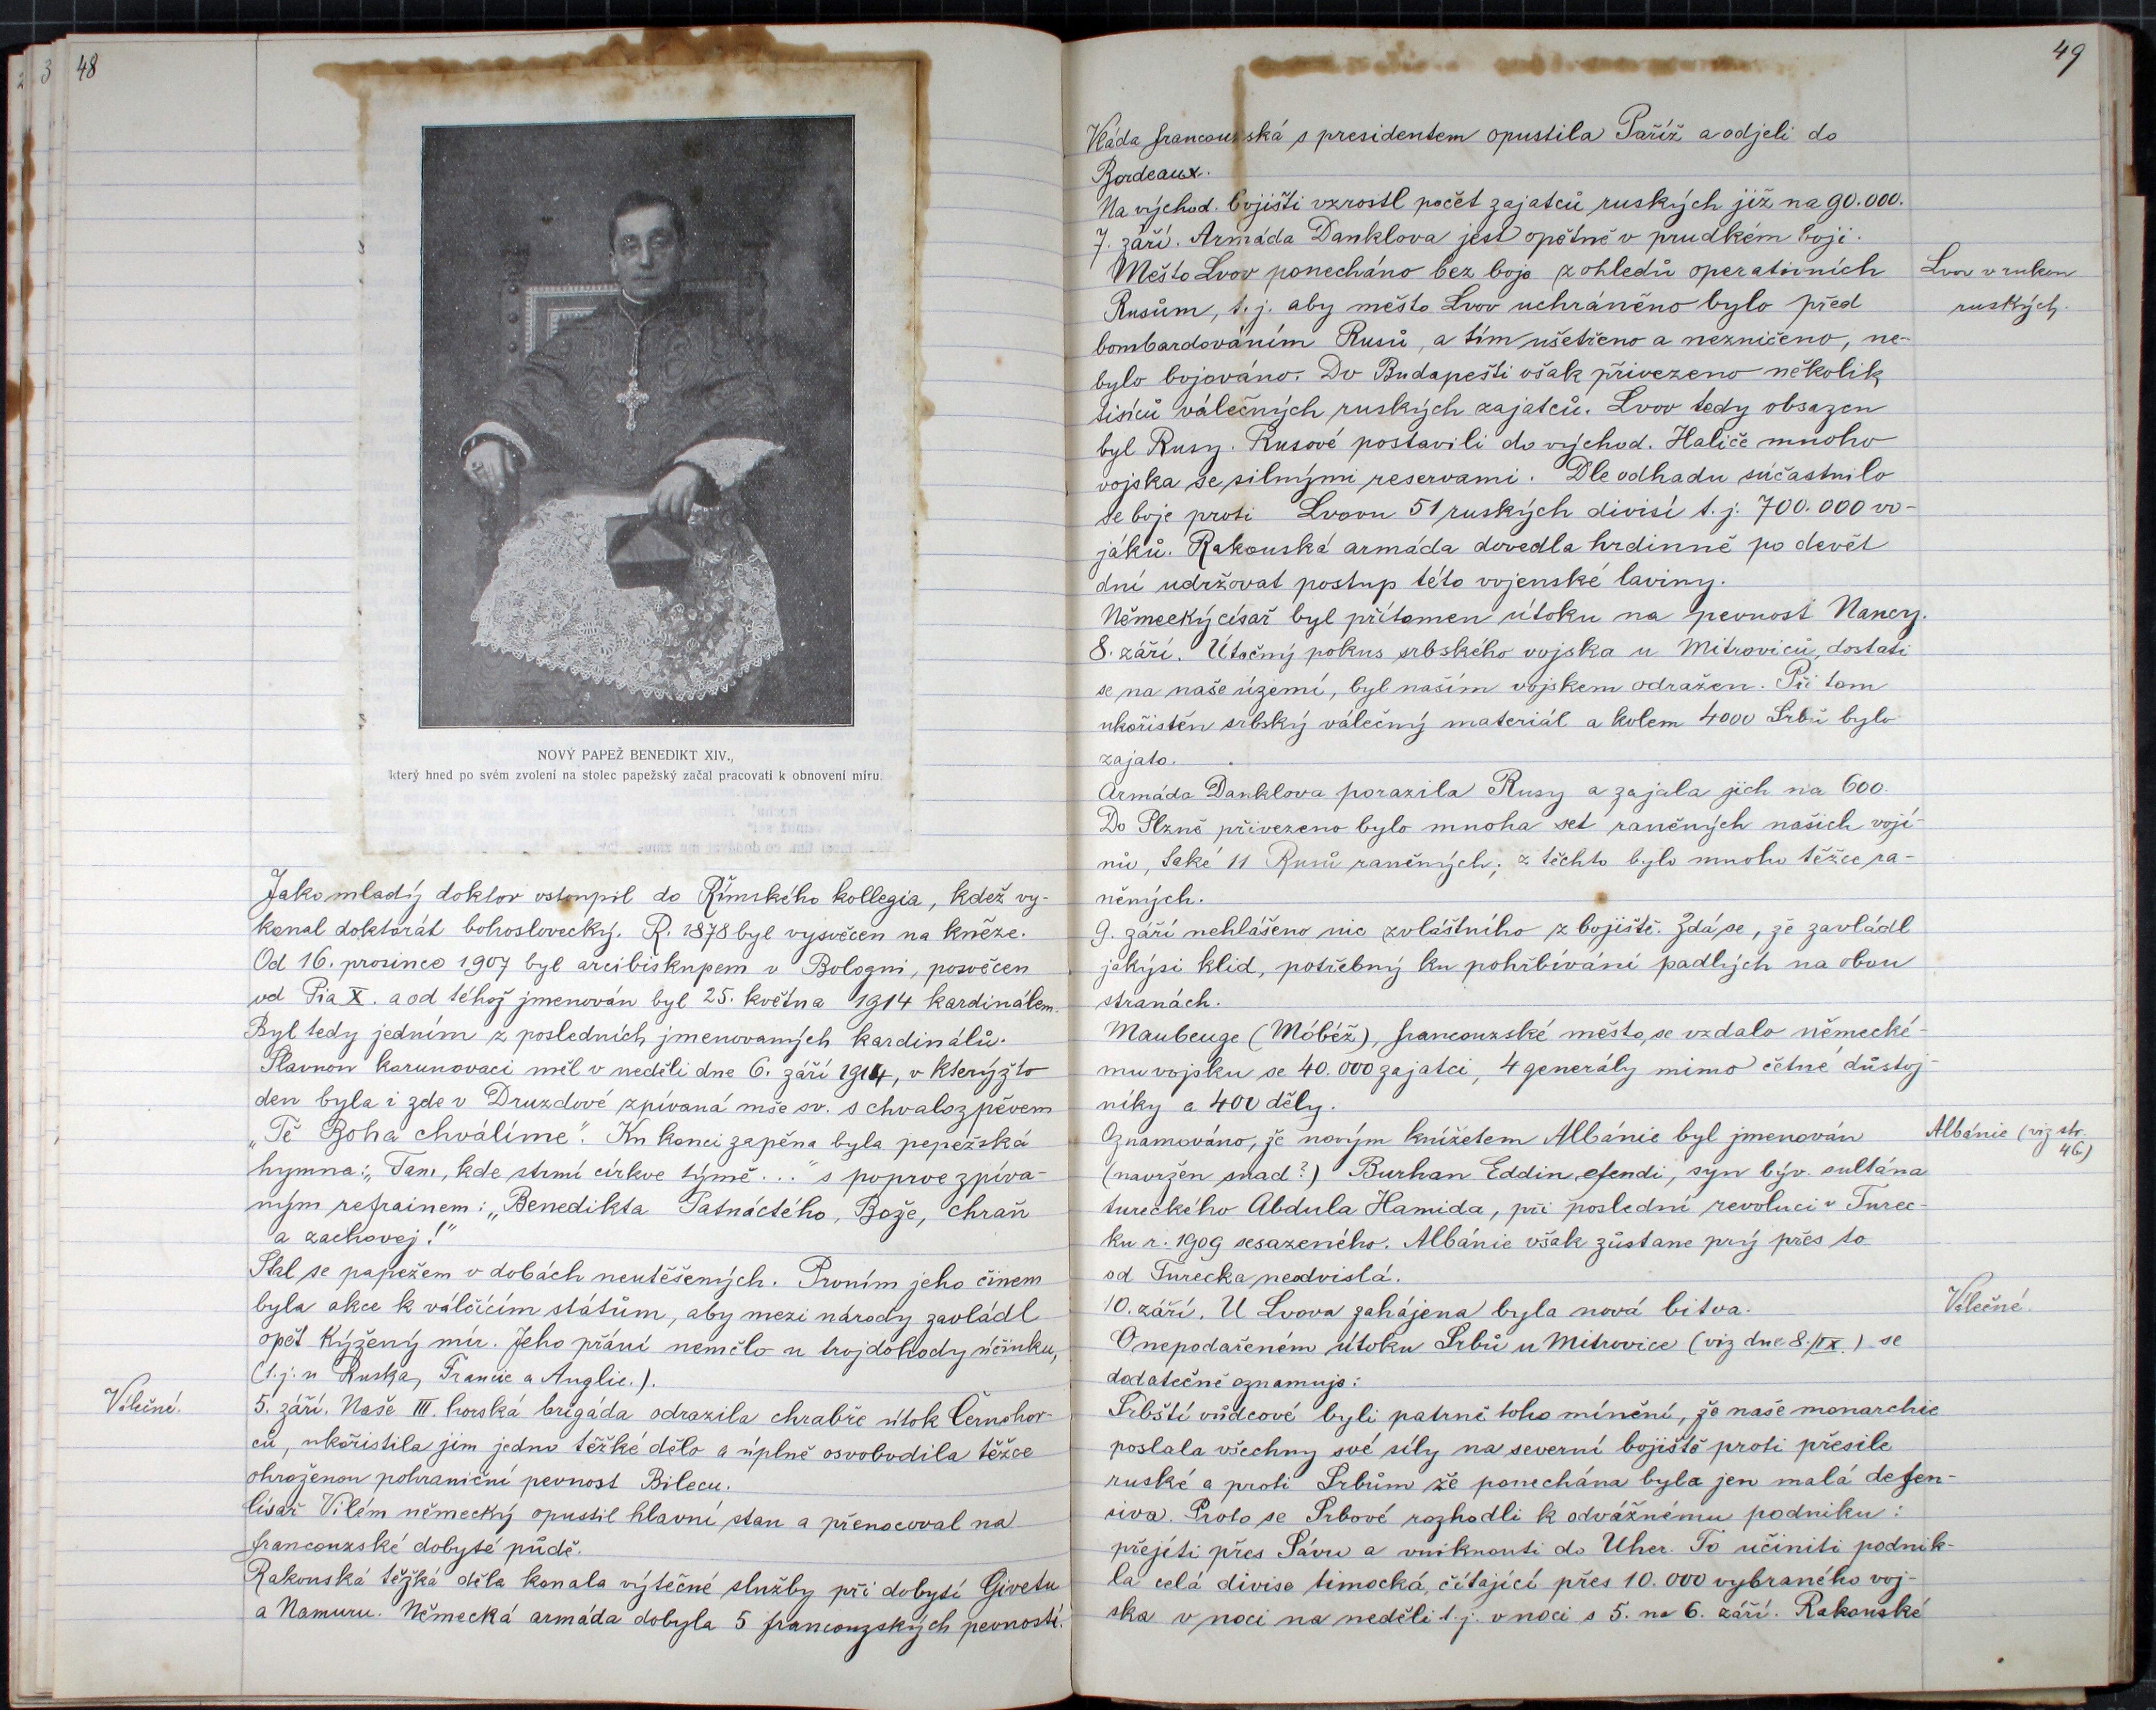 48
NOVÝ PAPEŽ BENEDIKT XIV.,
který hned po svém zvolení na stolec papežský začal pracovati k obnovení míru.
Jako mladý doktor vstoupil do Římského kollegia, kdež vy-
konal doktorát bohoslovecký. R. 1878 byl vysvěcen na kněze.
Od 16. prosince 1907 byl arcibiskupem v Bologni, posvěcen
od Pia X. a od téhož jmenován byl 25. května 1914 kardinálem.
Byl tedy jedním z posledních jmenovaných kardinálů.
Slavnou korunovaci měl v neděli dne 6. září 1914, v kterýžto
den byla i zde v Druzdové zpívaná mše sv. s chvalozpěvem
„Tě Boha chválíme". Ku konci zapěna byla pepežská
hymna: „Tam, kde strmí církve týmě..." s poprve zpíva-
ným refrainem: „Benedikta Patnáctého, Bože, chraň
a zachovej!"
Stal se papežem v dobách neutěšených. Prvním jeho činem
byla akce k válčícím státům, aby mezi národy zavládl
opět kýžený mír. Jeho přání nemělo u trojdohody účinku,
(t.j. u Ruska, Francie a Anglie.).
Válečné.
5. září. Naše III. horská brigáda odrazila chrabře útok Černohor-
ců, ukořistila jim jedno těžké dělo a úplně osvobodila těžce
ohroženou pohraniční pevnost Bilecu.
Císař Vilém německý opustil hlavní stan a přenocoval na
francouzské dobyté půdě.
Rakouská těžká děla konala výtečné služby při dobytí Givetu
a Namuru. Německá armáda dobyla 5 francouzských pevností.
49
Vláda francouzská s presidentem opustila Paříž a odjeli do
Bordeaux.
Na východ. bojišti vzrostl počet zajatců ruských již na 90.000.
7. září. Armáda Danklova jest opětně v prudkém boji.
Město Lvov ponecháno bez boje z ohledů operativních
Lvov v rukou
Rusům, t.j. aby město Lvov uchráněno bylo před
ruských.
bombardováním Rusů, a tím ušetřeno a nezničeno, ne-
bylo bojováno. Do Budapešti však přivezeno několik
tisíců válečných ruských zajatců. Lvov tedy obsazen
byl Rusy. Rusové postavili do východ. Haliče mnoho
vojska se silnými reservami. Dle odhadu súčastnilo
se boje proti Lvovu 51 ruských divisí t.j. 700.000 vo-
jáků. Rakouská armáda dovedla hrdinně po devět
dní udržovat postup této vojenské laviny.
Německý císař byl přítomen útoku na pevnost Nancy.
8. září. Útočný pokus srbského vojska u Mitroviců, dostati
se na naše území, byl naším vojskem odražen. Při tom
ukořistěn srbský válečný materiál a kolem 4000 Srbů bylo
zajato.
Armáda Danklova porazila Rusy a zajala jich na 600.
Do Plzně přivezeno bylo mnoha set raněných našich vojí-
nů, také 11 Rusů raněných; z těchto bylo mnoho těžce ra-
něných.
9. září nehlášeno nic zvláštního z bojiště. Zdá se, že zavládl
jakýsi klid, potřebný ku pohřbívání padlých na obou
stranách.
Maubeuge (Móbéž), francouzské město, se vzdalo německé-
mu vojsku se 40.000 zajatci, 4 generály mimo četné důstoj-
níky a 400 děly.
Oznamováno, že novým knížetem Albánie byl jmenován
Albánie (viz str.
46.)
(navržen snad?) Burhan Eddin efendi, syn býv. sultána
tureckého Abdula Hamida, při poslední revoluci v Turec-
ku r. 1909 sesazeného. Albánie však zůstane prý přes to
od Turecka neodvislá.
10. září. U Lvova zahájena byla nová bitva.
Válečné.
O nepodařeném útoku Srbů u Mitrovice (viz dne 8./IX.) se
dodatečně oznamuje:
Srbští vůdcové byli patrně toho mínění, že naše monarchie
poslala všechny své síly na severní bojiště proti přesile
ruské a proti Srbům že ponechána byla jen malá defen-
siva. Proto se Srbové rozhodli k odvážnému podniku:
přejíti přes Sávu a vniknouti do Uher. To učiniti podnik-
la celá divise timocká, čítající přes 10.000 vybraného voj-
ska v noci na neděli t.j. v noci s 5. na 6. září. Rakouské